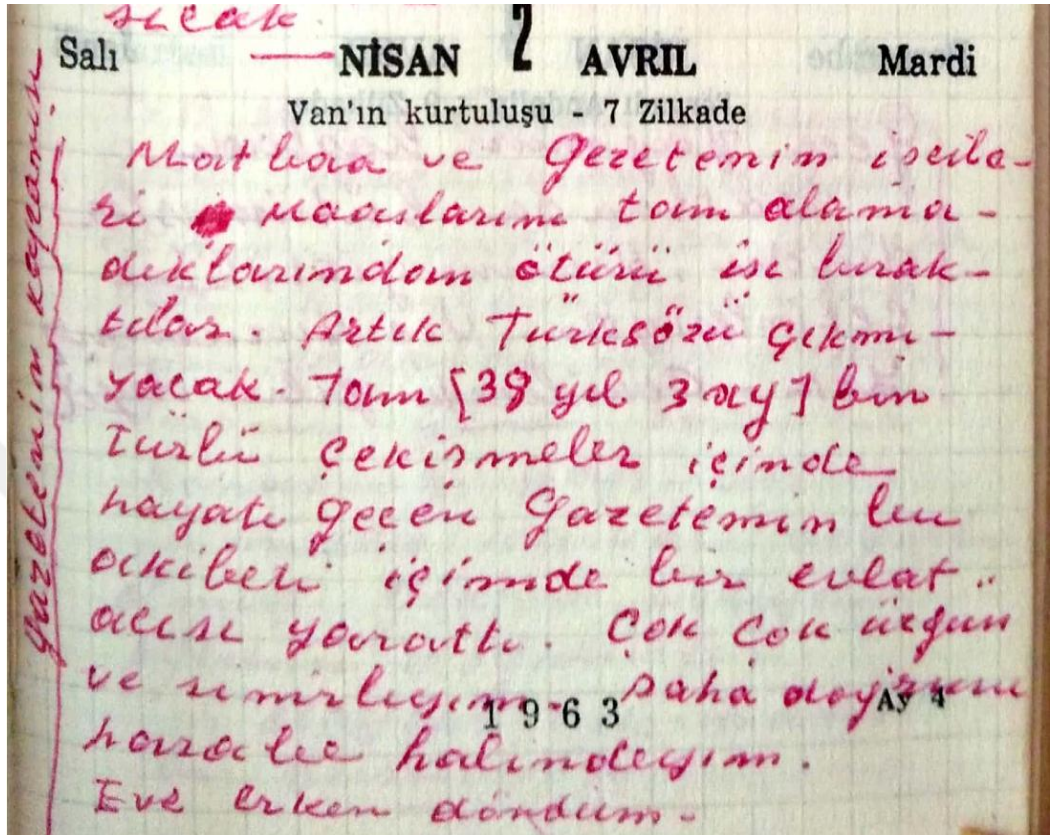 sıcak
Salı NİSAN 2 AVRIL Mardi
Van'ın kurtuluşu - 7 Zilkade
Matbaa ve Gezetemin işcile-
ri maaşlarını tam alama-
dıklarından ötürü işi bırak-
tılar. Artık Türksözü çıkmı-
yacak. Tam [38 yıl 3 ay] bin
türlü çekişmeler içinde
hayatı geçen Gazetemin bu
akibeti içimde bir evlat
acısı yarattı. Çok çok üzgün
ve sinirliyim. Daha doğrusu
harabe halindeyim.
1963 Ay 4
Eve erken döndüm.
Gazetenin kapanışı